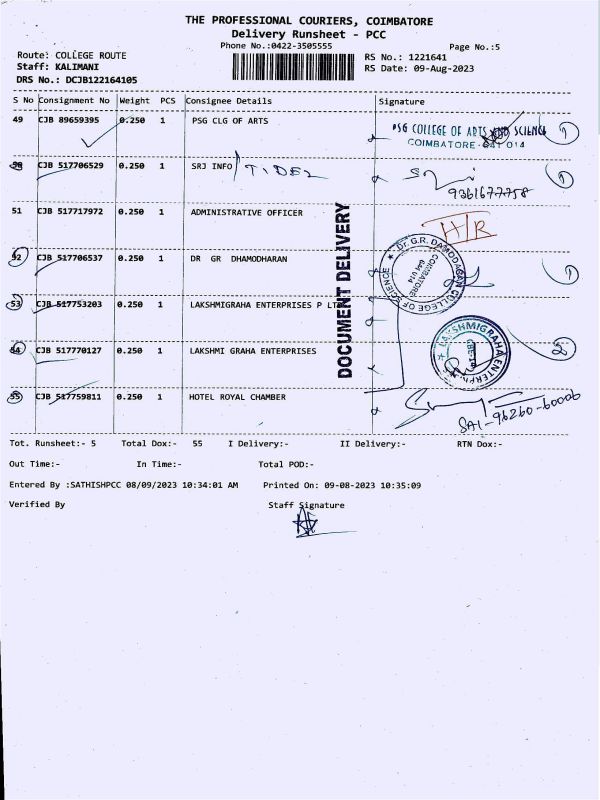 THE PROFESSIONAL COURIERS, COIMBATORE
Delivery Runsheet - PCC
Phone No.:0422-3505555
Page No.:5
Route: COLLEGE ROUTE
RS No.: 1221641
Staff: KALIMANI
RS Date: 09-Aug-2023
DRS No.: DCJB122164105
S No Consignment No Weight PCS Consignee Details Signature
49 CJB 89659395 0.250 1 PSG CLG OF ARTS
PSG COLLEGE OF ARTS AND SCIENCE
COIMBATORE - 641 014
1
50 CJB 517706529 0.250 1 SRJ INFO TIDEL
9361677758
1
51 CJB 517717972 0.250 1 ADMINISTRATIVE OFFICER
H/R
52 CJB 517706537 0.250 1 DR GR DHAMODHARAN
Dr. G.R. DAMODARAN COLLEGE OF SCIENCE
COIMBATORE
641 014
1
53 CJB 517753203 0.250 1 LAKSHMIGRAHA ENTERPRISES P LTD
54 CJB 517770127 0.250 1 LAKSHMI GRAHA ENTERPRISES
LAKSHMIGRAHA ENTERPRISES
2
55 CJB 517759811 0.250 1 HOTEL ROYAL CHAMBER
SAI-96260-60006
DOCUMENT DELIVERY
Tot. Runsheet:- 5 Total Dox:- 55 I Delivery:- II Delivery:- RTN Dox:-
Out Time:- In Time:- Total POD:-
Entered By :SATHISHPCC 08/09/2023 10:34:01 AM Printed On: 09-08-2023 10:35:09
Verified By Staff Signature